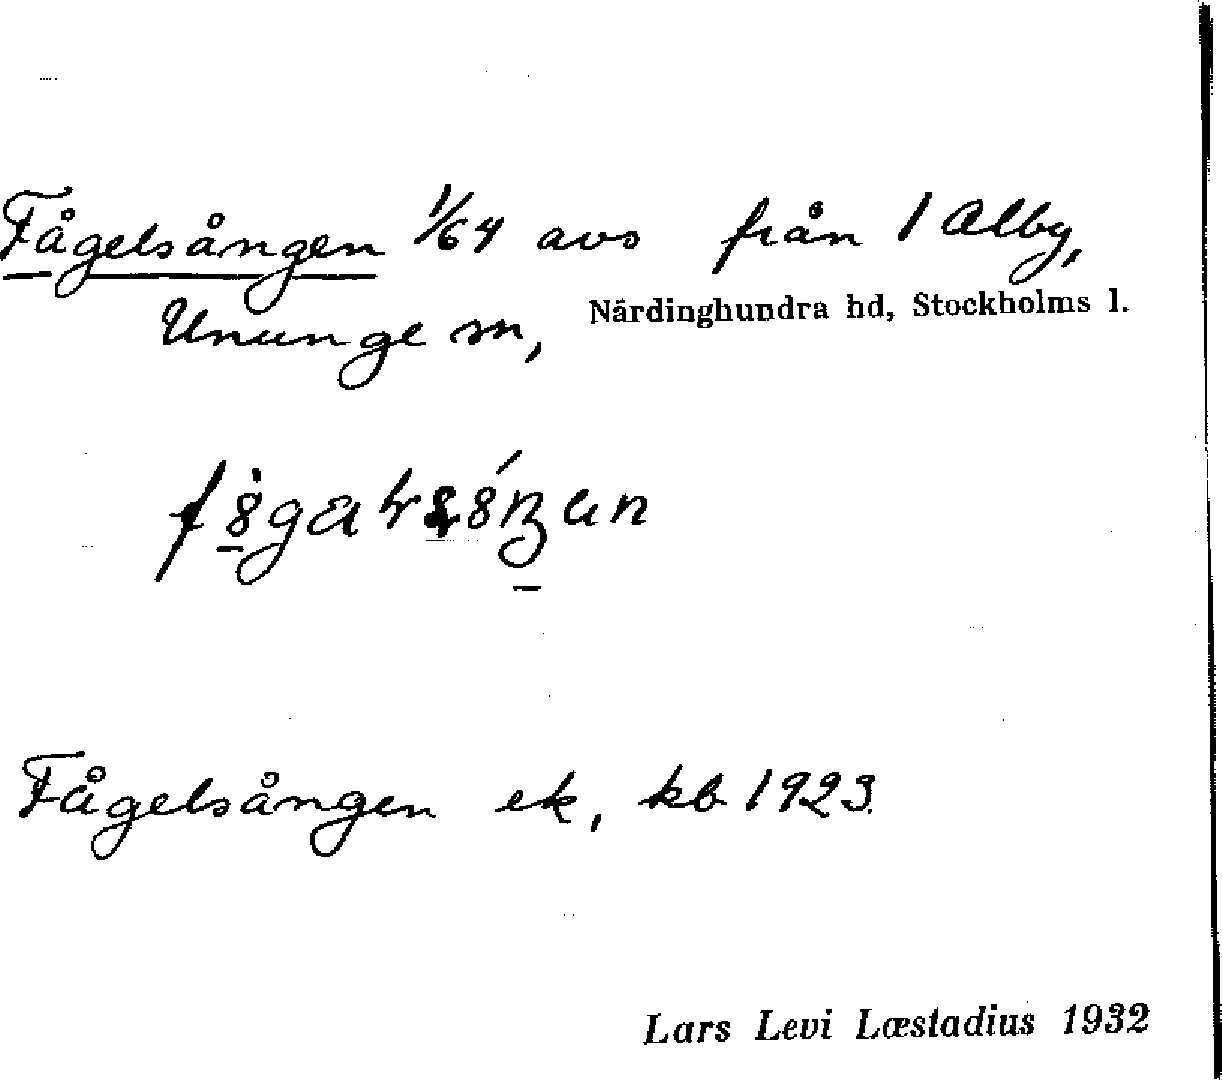 Fågelsången 1/64 avs från 1 Alby,
Ununge sn, Närdinghundra hd, Stockholms l.
Fågelsången ek, kb 1923.
Lars Levi Læstadius 1932